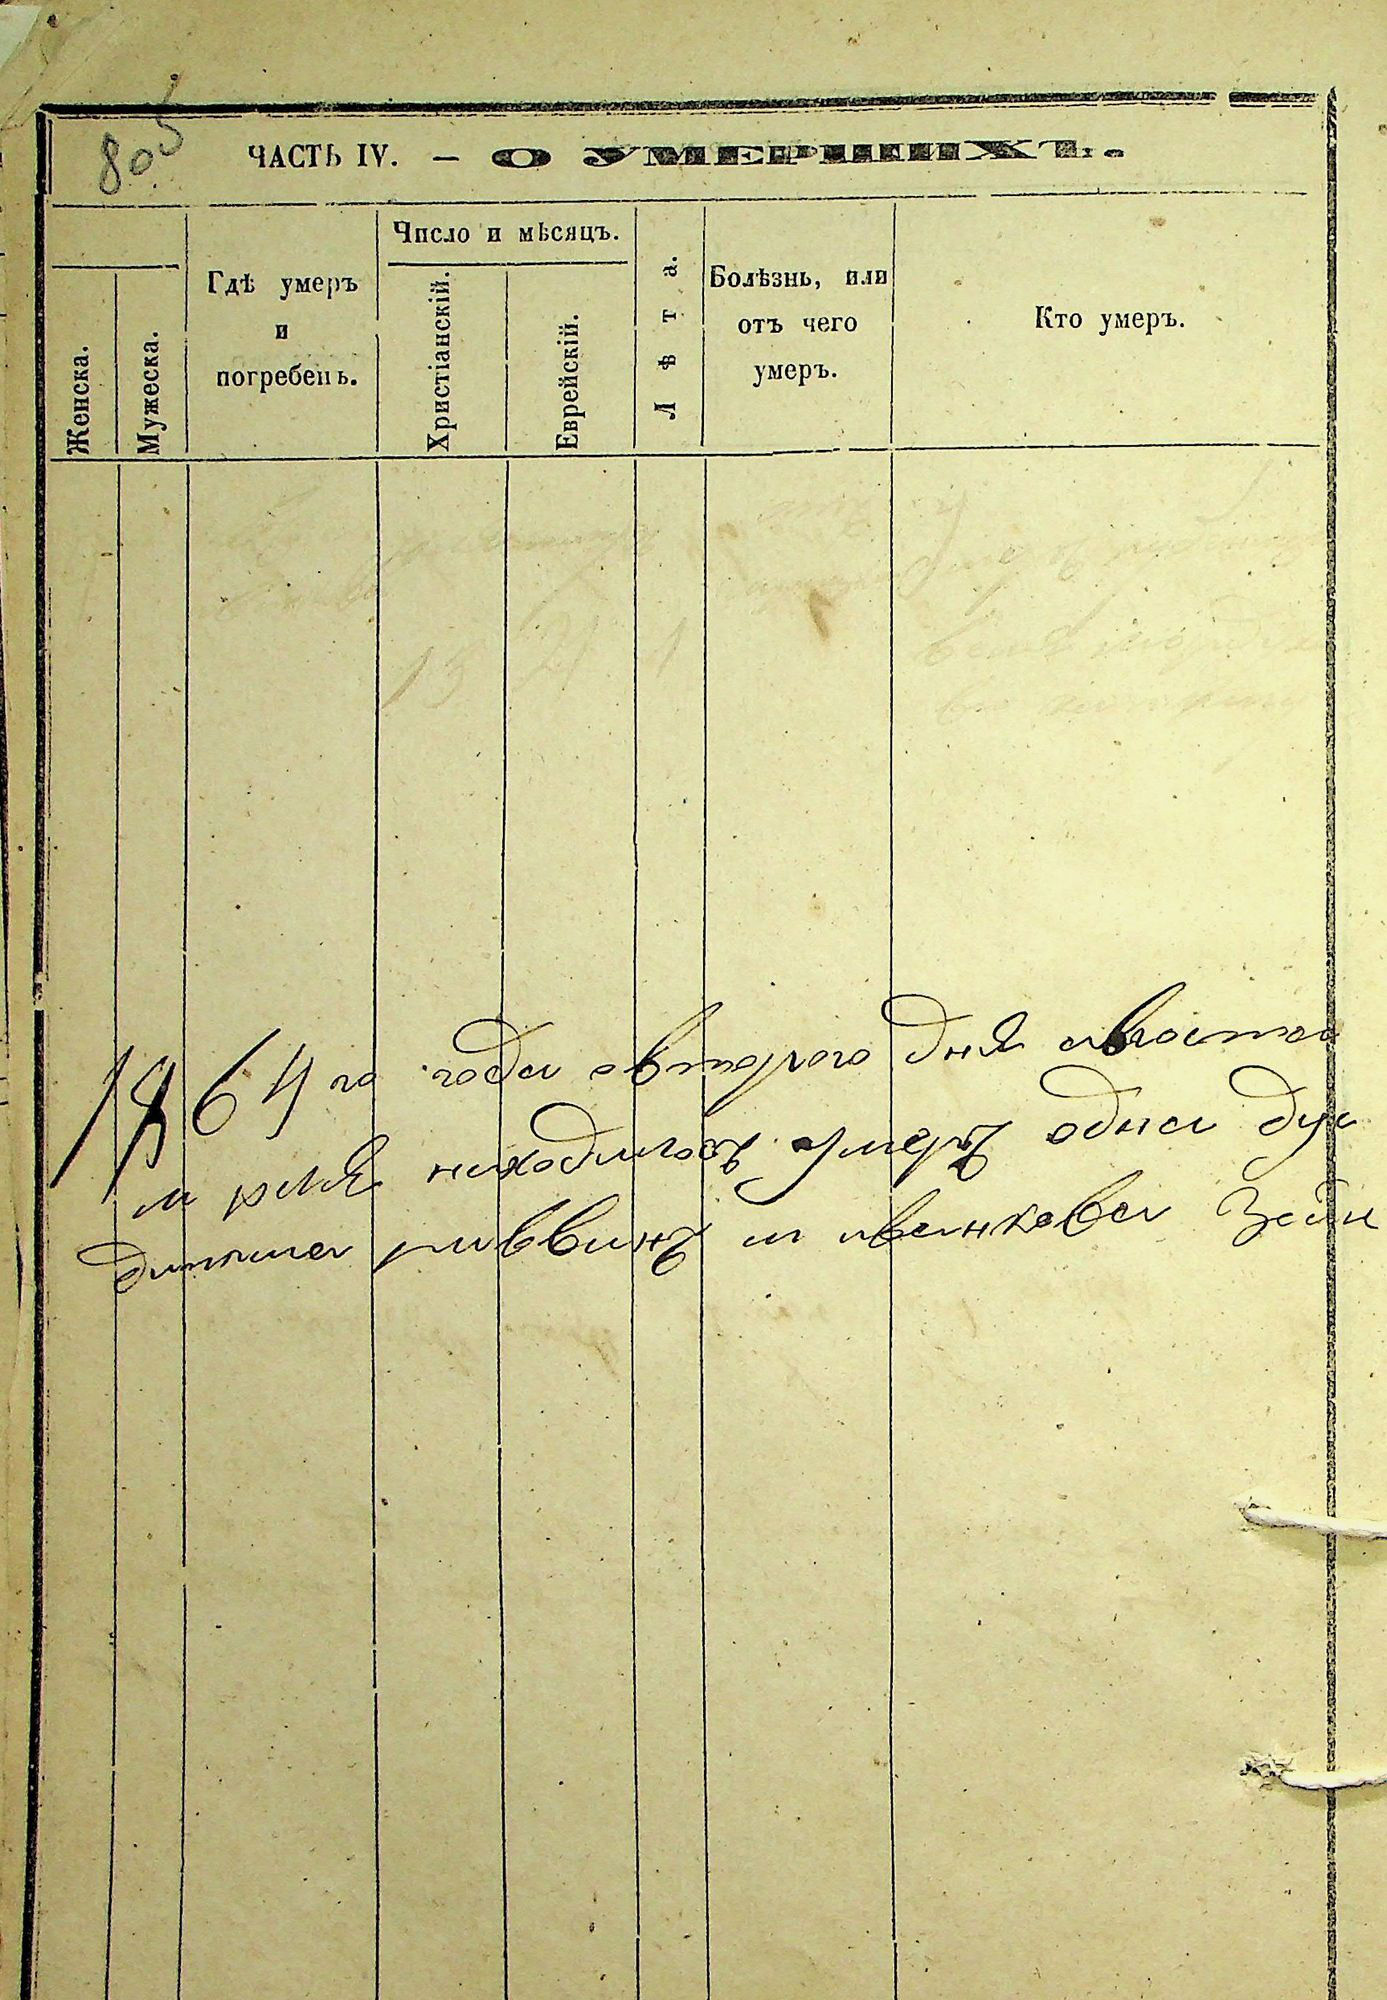 805
ЧАСТЬ IV. — О УМЕРШИХЪ.
Женска.
Мужеска.
Гдѣ умеръ
и
погребенъ.
Число и мѣсяцъ.
Христіанскій.
Еврейскій.
Лѣта.
Болѣзнь, или
отъ чего
умеръ.
Кто умеръ.
1864 го года авторого дня
и находилось умеръ одна
раввинъ и